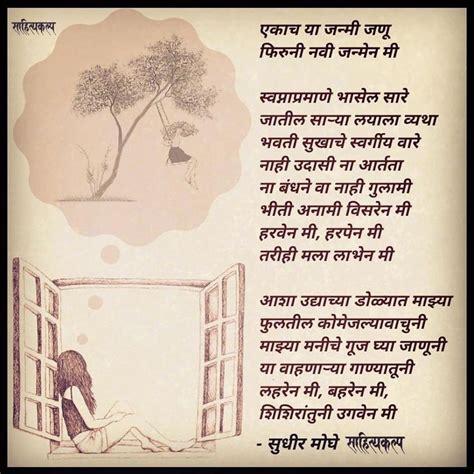 साहित्यकल्प
एकाच या जन्मी जणू
फिरुनी नवी जन्मेन मी
स्वप्नाप्रमाणे भासेल सारे
जातील साऱ्या लयाला व्यथा
भवती सुखाचे स्वर्गीय वारे
नाही उदासी ना आर्तता
ना बंधने वा नाही गुलामी
भीती अनामी विसरेन मी
हरवेन मी, हरपेन मी
तरीही मला लाभेन मी
आशा उद्याच्या डोळ्यात माझ्या
फुलतील कोमेजल्यावाचुनी
माझ्या मनीचे गूज घ्या जाणूनी
या वाहणाऱ्या गाण्यातूनी
लहरेन मी, बहरेन मी,
शिशिरांतुनी उगवेन मी
- सुधीर मोघे साहित्यकल्प